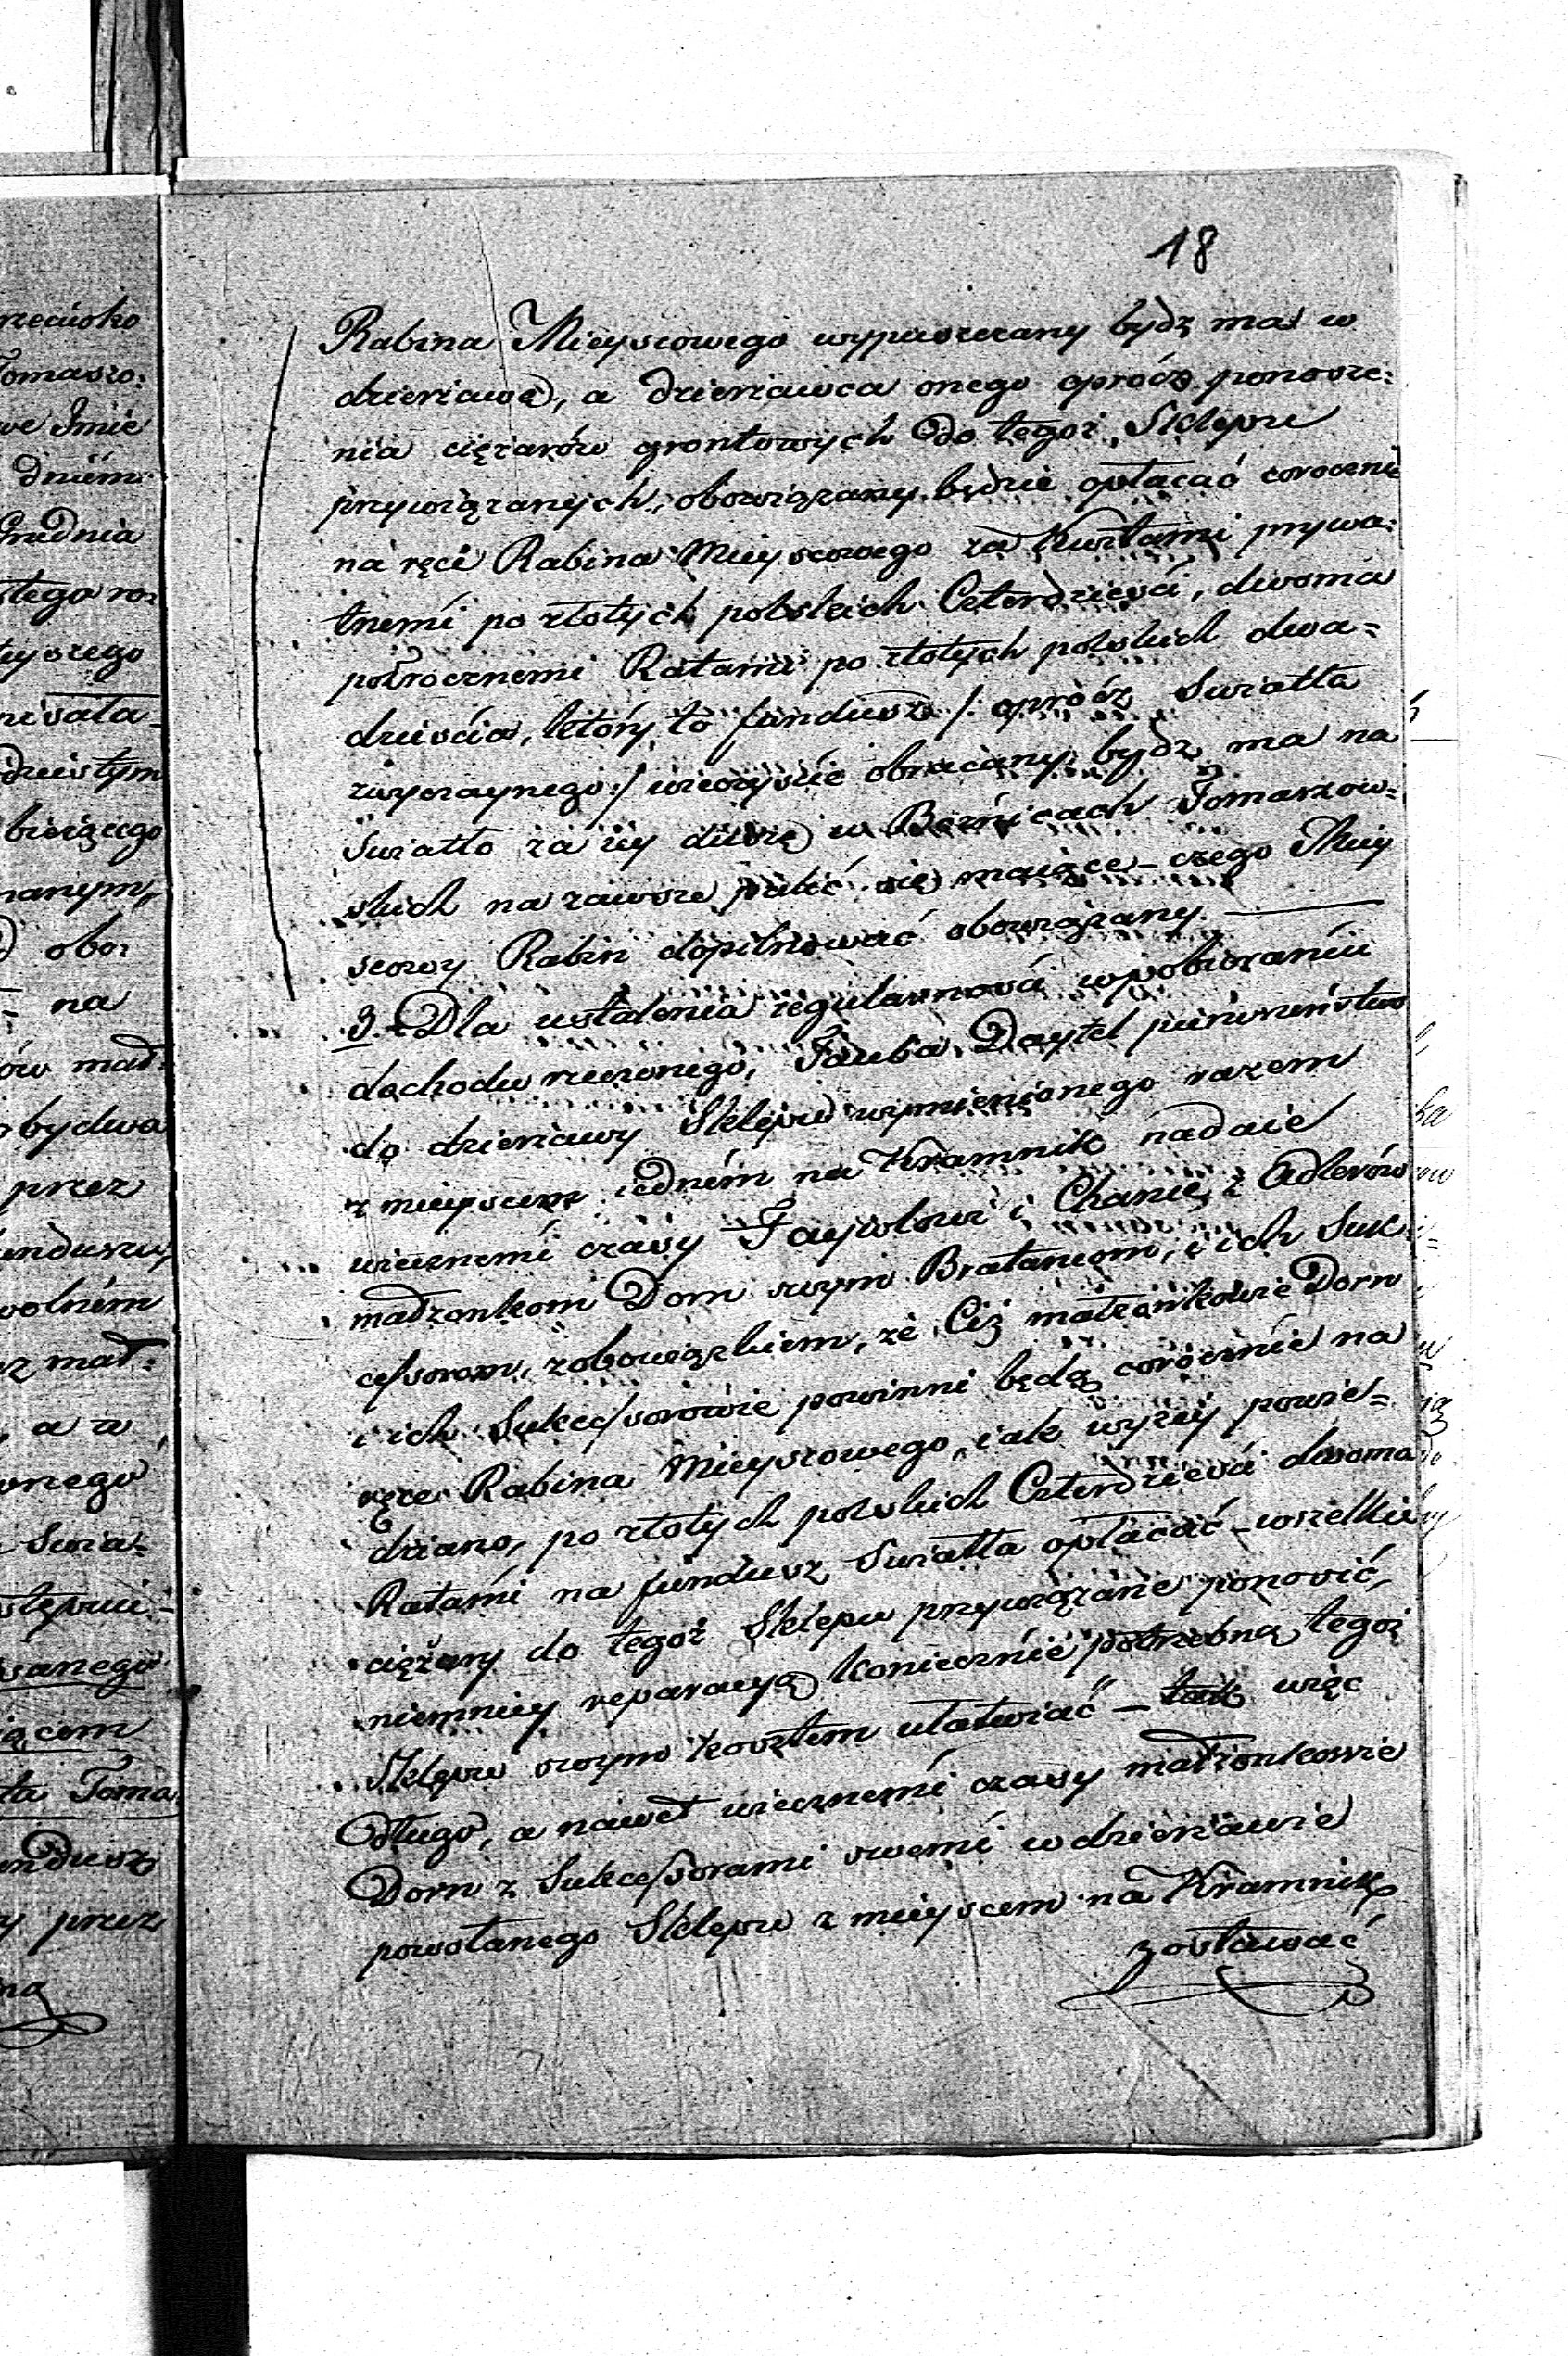 18
Rabina Mieyscowego wypuszczany bydź ma w
dzierżawę, a dzierżawca onego oprócz ponosze:
nia ciężarów grontowych do tegoż Sklepu
przywiązanych, obowiązany będzie opłacać corocznie
na ręce Rabina Mieyscowego za Kwitami prywa:
tnemi po złotych polskich Czterdzieści, dwoma
półrocznemi Ratami po złotych polskich dwa=
dzieścia, który to fundusz /: oprócz Swiatła
zwyczaynego :/ wieczyście obracany bydź ma na
Swiatło za iey duszę w Bożnicach Tomaszow=
skich na zawsze palić się maiące – czego Miey
scowy Rabin dopilnować obowiązany. —
3. Dla ustalenia regularności w pobieraniu
dochodu rzeczonego, Tauba Daytel pierwszeństwo
do dzierżawy Sklepu wymienionego razem
z mieyscem iednem na Kramnik nadaie
wiecznemi czasy Faywlowi i Chanie z Adlerów
małżonkom Dorn swym Bratankom, i ich Suk=
cessorom, z obowiązkiem, że Ciż małżonkowie Dorn
i ich Sukcessorowie powinni będą corocznie na
ręce Rabina Mieyscowego, iak wyżey powie=
dziano, po złotych polskich Czterdzieści dwoma
Ratami na fundusz Swiatła opłacać – wszelkie
ciężary do tegoż Sklepu przywiązane ponosić,
niemniey reparacyą koniecznie potrzebną tegoż
Sklepu swym kosztem ułatwiać – tak więc
długo, a nawet wiecznemi czasy małżonkowie
Dorn z Sukcessorami swemi w dzierżawie
powołanego Sklepu z mieyscem na Kramnik
zostawać
rzeciwko
Tomaszo:
we Imie
dniem
Grudnia
tego ro:
bieżącego
obo:
na
bydwa
przez
unduszu
wolném
a w
onego
Swia=
sanego
ta Toma
undusz
przez